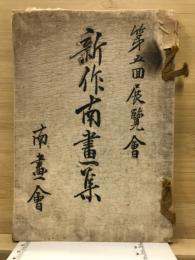 第五回展覧會
新作南畫集
南畫會